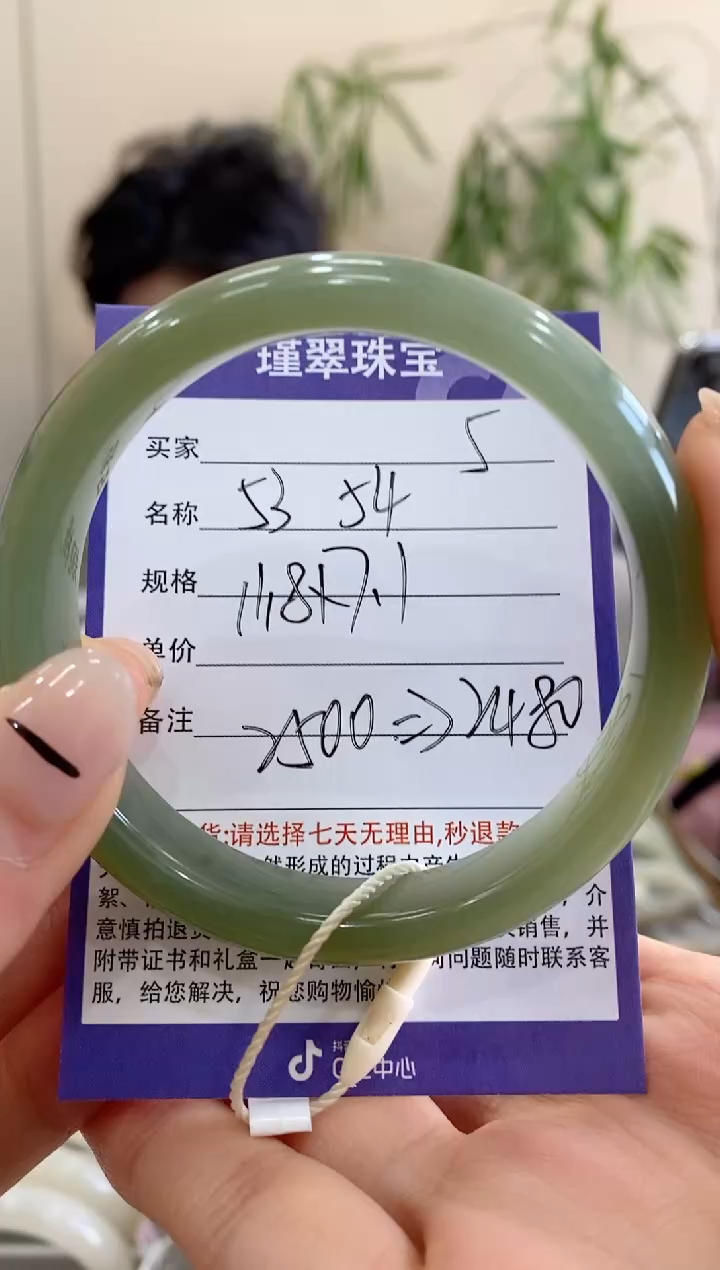 瑾翠珠宝
买家 5
名称 53 54
规格 11.8×7.1
单价
备注 2500 => 2480
货:请选择七天无理由,秒退款
然形成的过程中产生
絮、 ,介
意慎拍退货 销售,并
附带证书和礼盒一起 问题随时联系客
服,给您解决,祝您购物愉快
抖音
中心